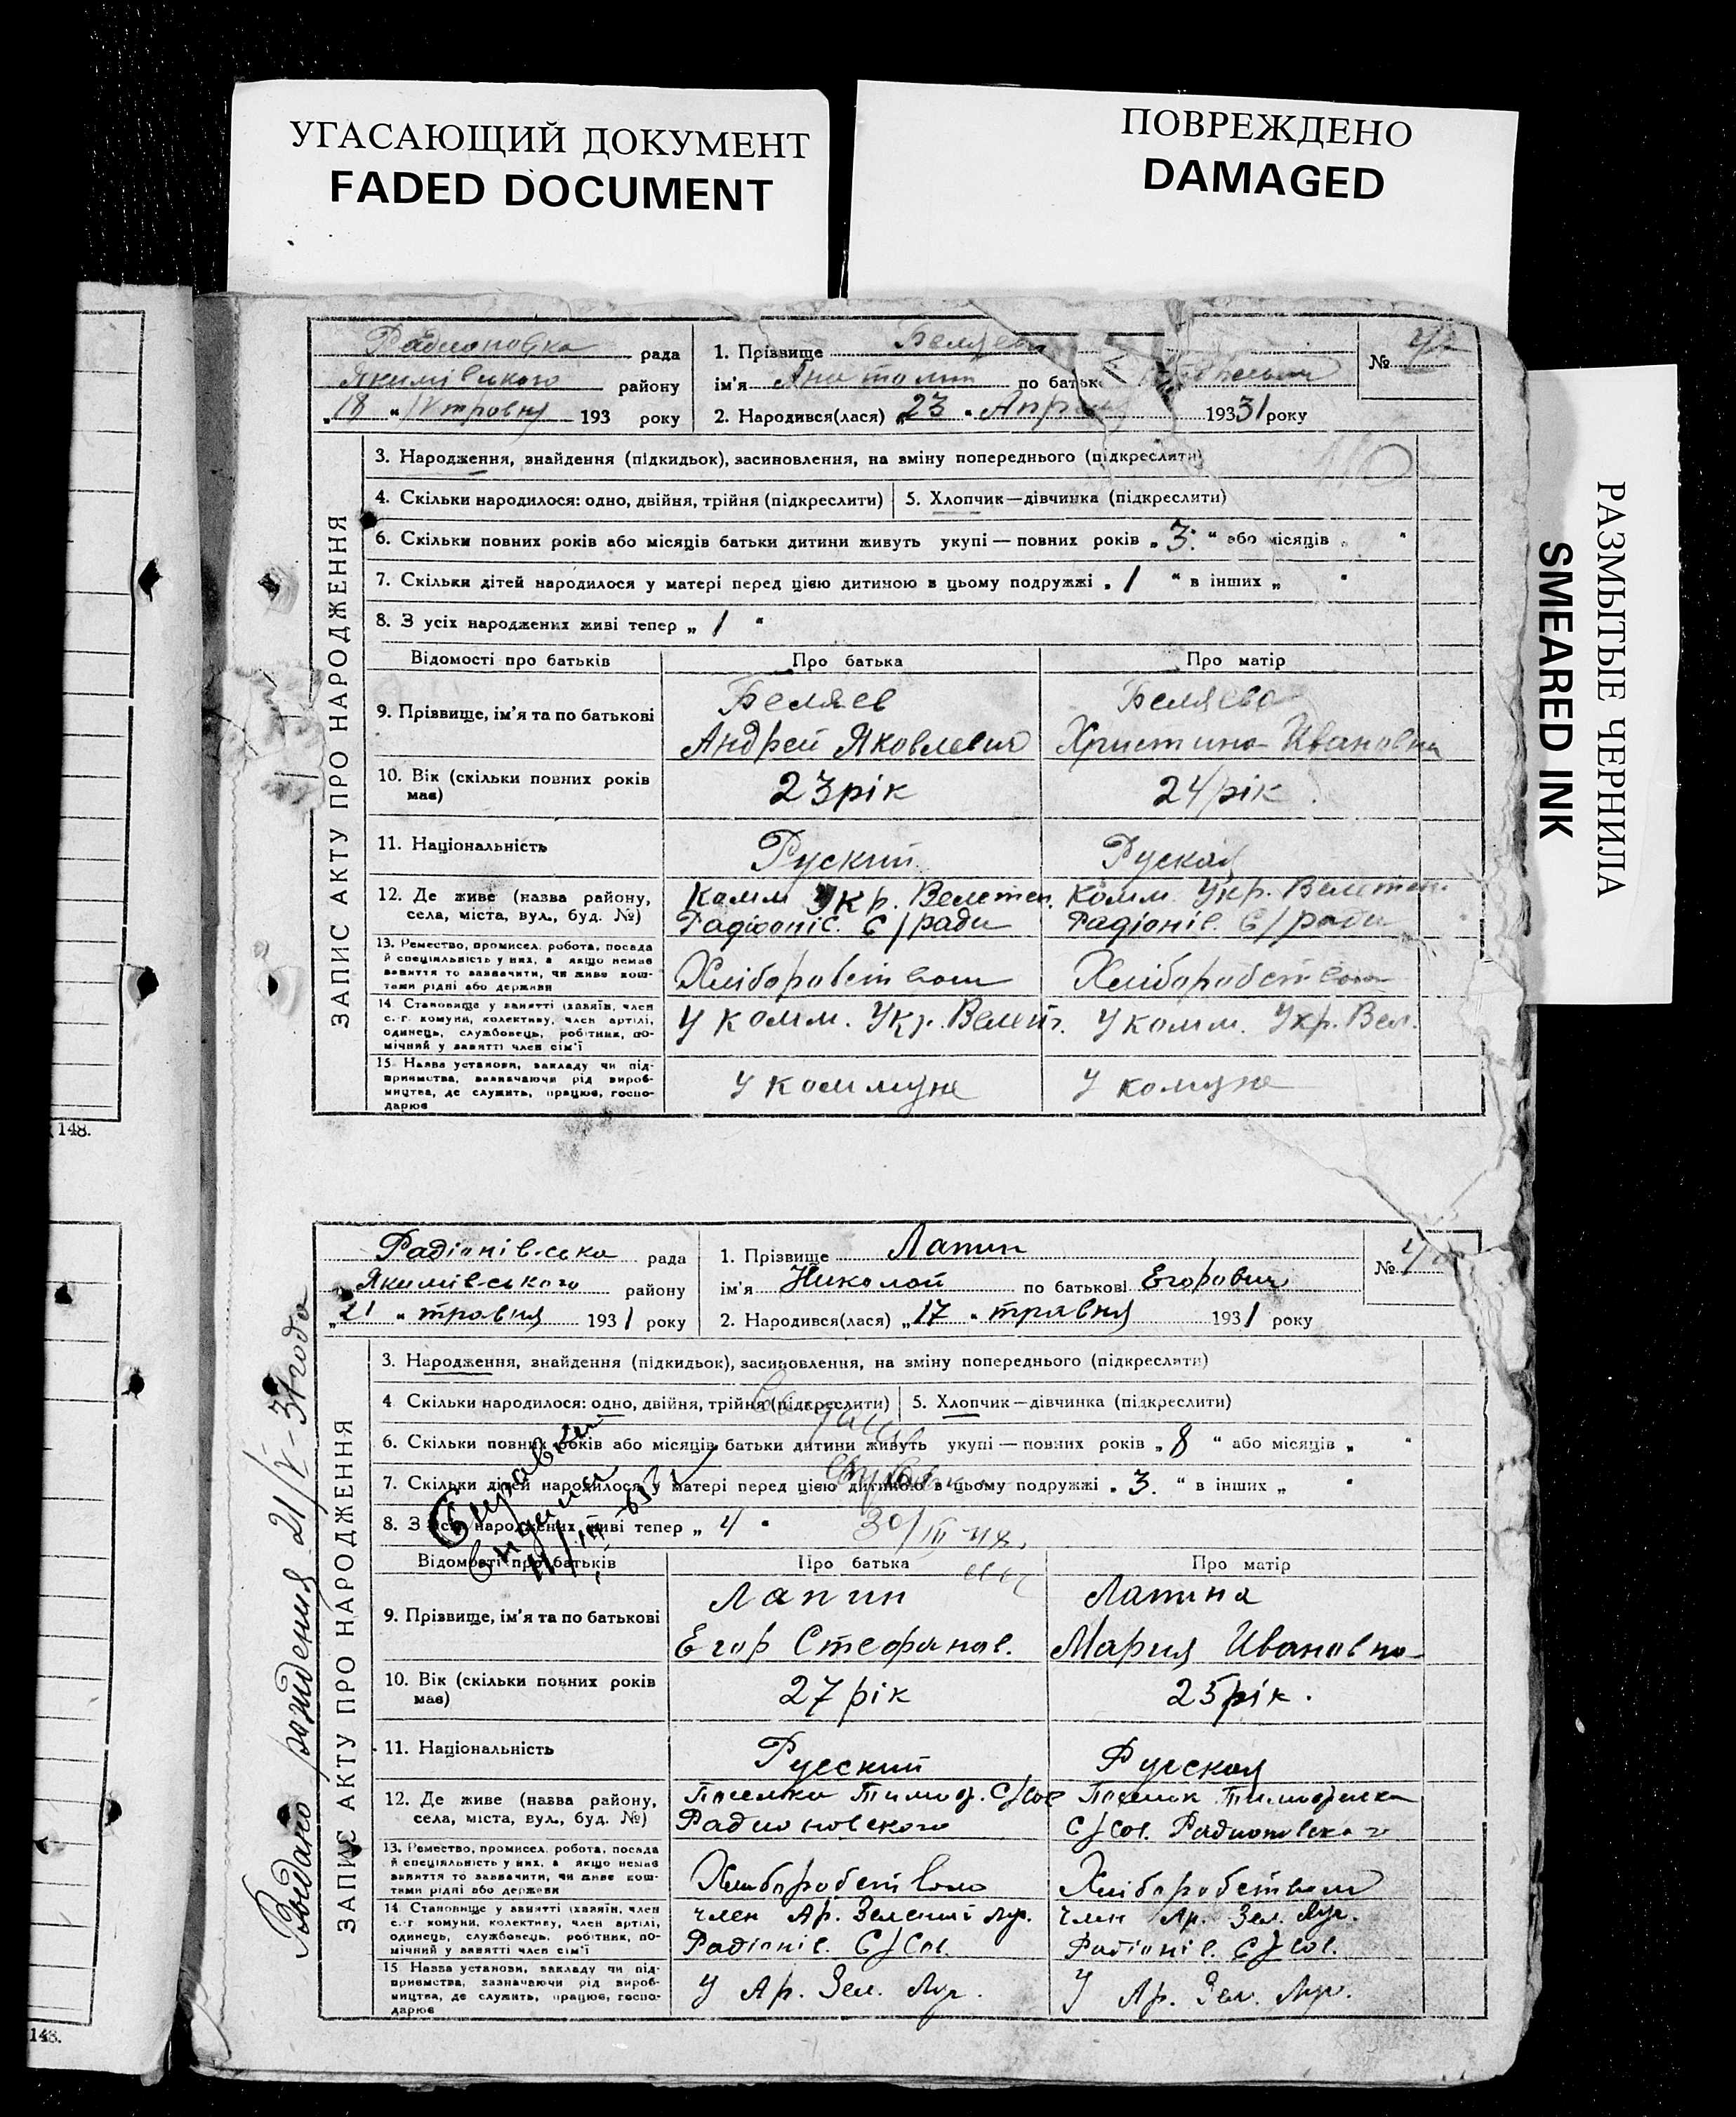 УГАСАЮЩИЙ ДОКУМЕНТ
FADED DOCUMENT
ПОВРЕЖДЕНО
DAMAGED
РАЗМЫТЫЕ ЧЕРНИЛА
SMEARED INK
148.
148.
Радионовка рада
Якимівського району
„18 “ травня 193 року
1. Прізвище Беляев
ім'я Анатолий по батьк
2. Народився(лася) „23 “ Апреля 19331 року
№
ЗАПИС АКТУ ПРО НАРОДЖЕННЯ
3. Народження, знайдення (підкидьок), засиновлення, на зміну попереднього (підкреслити)
4. Скільки народилося: одно, двійня, трійня (підкреслити)
5. Хлопчик—дівчинка (підкреслити)
6. Скільки повних років або місяців батьки дитини живуть укупі — повних років „3.“ або місяців „ “
7. Скільки дітей народилося у матері перед цією дитиною в цьому подружжі „1 “ в інших „ “
8. З усіх народжених живі тепер „ 1 “
Відомості про батьків Про батька Про матір
9. Прізвище, ім'я та по батькові
Беляев
Андрей Яковлевич
Беляева
Христина Ивановна
10. Вік (скільки повних років має)
23 рік
24 рік
11. Національність
Руский
Руская
12. Де живе (назва району, села, міста, вул., буд. №)
Комм Укр. Велетен.
Радіоніс. С/ради
Комм. Укр. Велетен.
Радіонів. С/ради
13. Ремество, промисел, робота, посада
й спеціяльність у них, а якщо немає
заняття то зазначити, чи живе кош-
тами рідні або держави
Хліборобством
Хліборобством
14. Становище у занятті (хазяїн, член
с.-г. комуни, колективу, член артілі,
одинець, службовець, робітник, по-
мічний у занятті член сім'ї
У комм. Укр. Велет.
У комм. Укр. Вел.
15. Назва установи, закладу чи під-
приємства, зазначаючи рід вироб-
ництва, де служить, працює, госпо-
дарює
У коммуне
У комуне
Радіонівська рада
Якимівського району
„21 “ травня 1931 року
1. Прізвище Лапин
ім'я Николай по батькові Егорович
2. Народився(лася) „17 “ травня 1931 року
№
ЗАПИС АКТУ ПРО НАРОДЖЕННЯ
Выдано рождения 21/V-31 года
3. Народження, знайдення (підкидьок), засиновлення, на зміну попереднього (підкреслити)
4 Скільки народилося: одно, двійня, трійня (підкреслити)
5. Хлопчик—дівчинка (підкреслити)
6. Скільки повних років або місяців батьки дитини живуть укупі — повних років „ 8 “ або місяців „ “
7. Скільки дітей народилося у матері перед цією дитиною в цьому подружжі „ 3. “ в інших „ “
8. З усіх народжених живі тепер „ 4 “
30/III
Відомості про батьків Про батька Про матір
9. Прізвище, ім'я та по батькові
Лапин
Егор Стефанов.
Лапина
Мария Ивановна
10. Вік (скільки повних років має)
27 рік
25 рік.
11. Національність
Русский
Русская
12. Де живе (назва району, села, міста, вул., буд. №)
Поселка Тимоф. С/Сов
Радионовского
Поселок Тимофеевка
С/Сов. Радионовского
13. Ремество, промисел, робота, посада
й спеціяльність у них, а якщо немає
заняття то зазначити, чи живе кош-
тами рідні або держави
Хліборобством
Хліборобством
14. Становище у занятті (хазяїн, член
с.-г. комуни, колективу, член артілі,
одинець, службовець, робітник, по-
мічний у занятті член сім'ї
член Ар. Зелений Луг.
Радіонів. С/Сов.
член Ар. Зел. Луг.
Радіонів. С/Сов.
15 Назва установи, закладу чи під-
приємства, зазначаючи рід вироб-
ництва, де служить, працює, госпо-
дарює
У Ар. Зел. Луг.
У Ар. Зел. Луг.